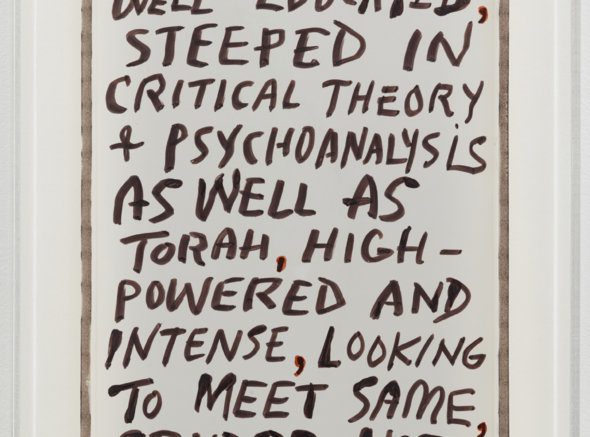 WELL EDUCATED,
STEEPED IN
CRITICAL THEORY
+ PSYCHOANALYSIS
AS WELL AS
TORAH, HIGH-
POWERED AND
INTENSE, LOOKING
TO MEET SAME,